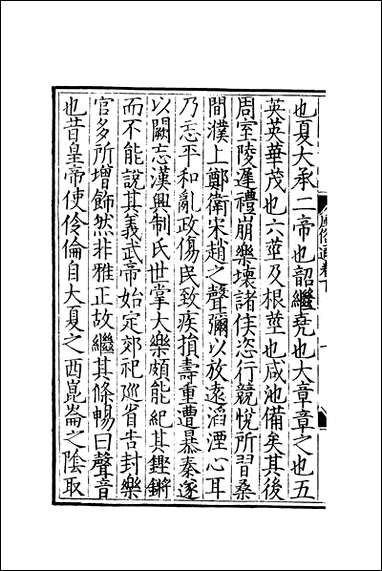 風俗通卷下
也夏大承二帝也韶繼堯也大章章之也五
英英華茂也六莖及根莖也咸池備矣其後
周室陵遲禮崩樂壞諸侯恣行競悅所習桑
間濮上鄭衛宋趙之聲彌以放遠滔湮心耳
乃忘平和亂政傷民致疾損壽重遭暴秦遂
以闕忘漢興制氏世掌大樂頗能紀其鏗鏘
而不能說其義武帝始定郊祀廵省告封樂
官多所增飾然非雅正故繼其條暢曰聲音
也昔皇帝使伶倫自大夏之西崑崙之隂取